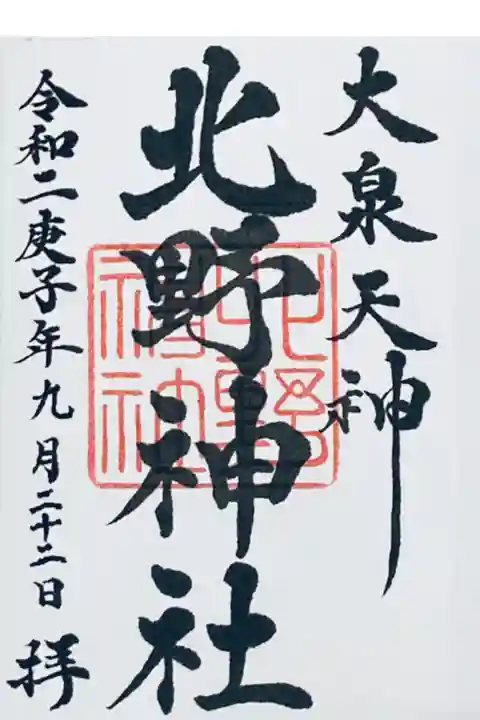 大泉天神
北野神社
令和二庚子年九月二十二日 拝
北野神社